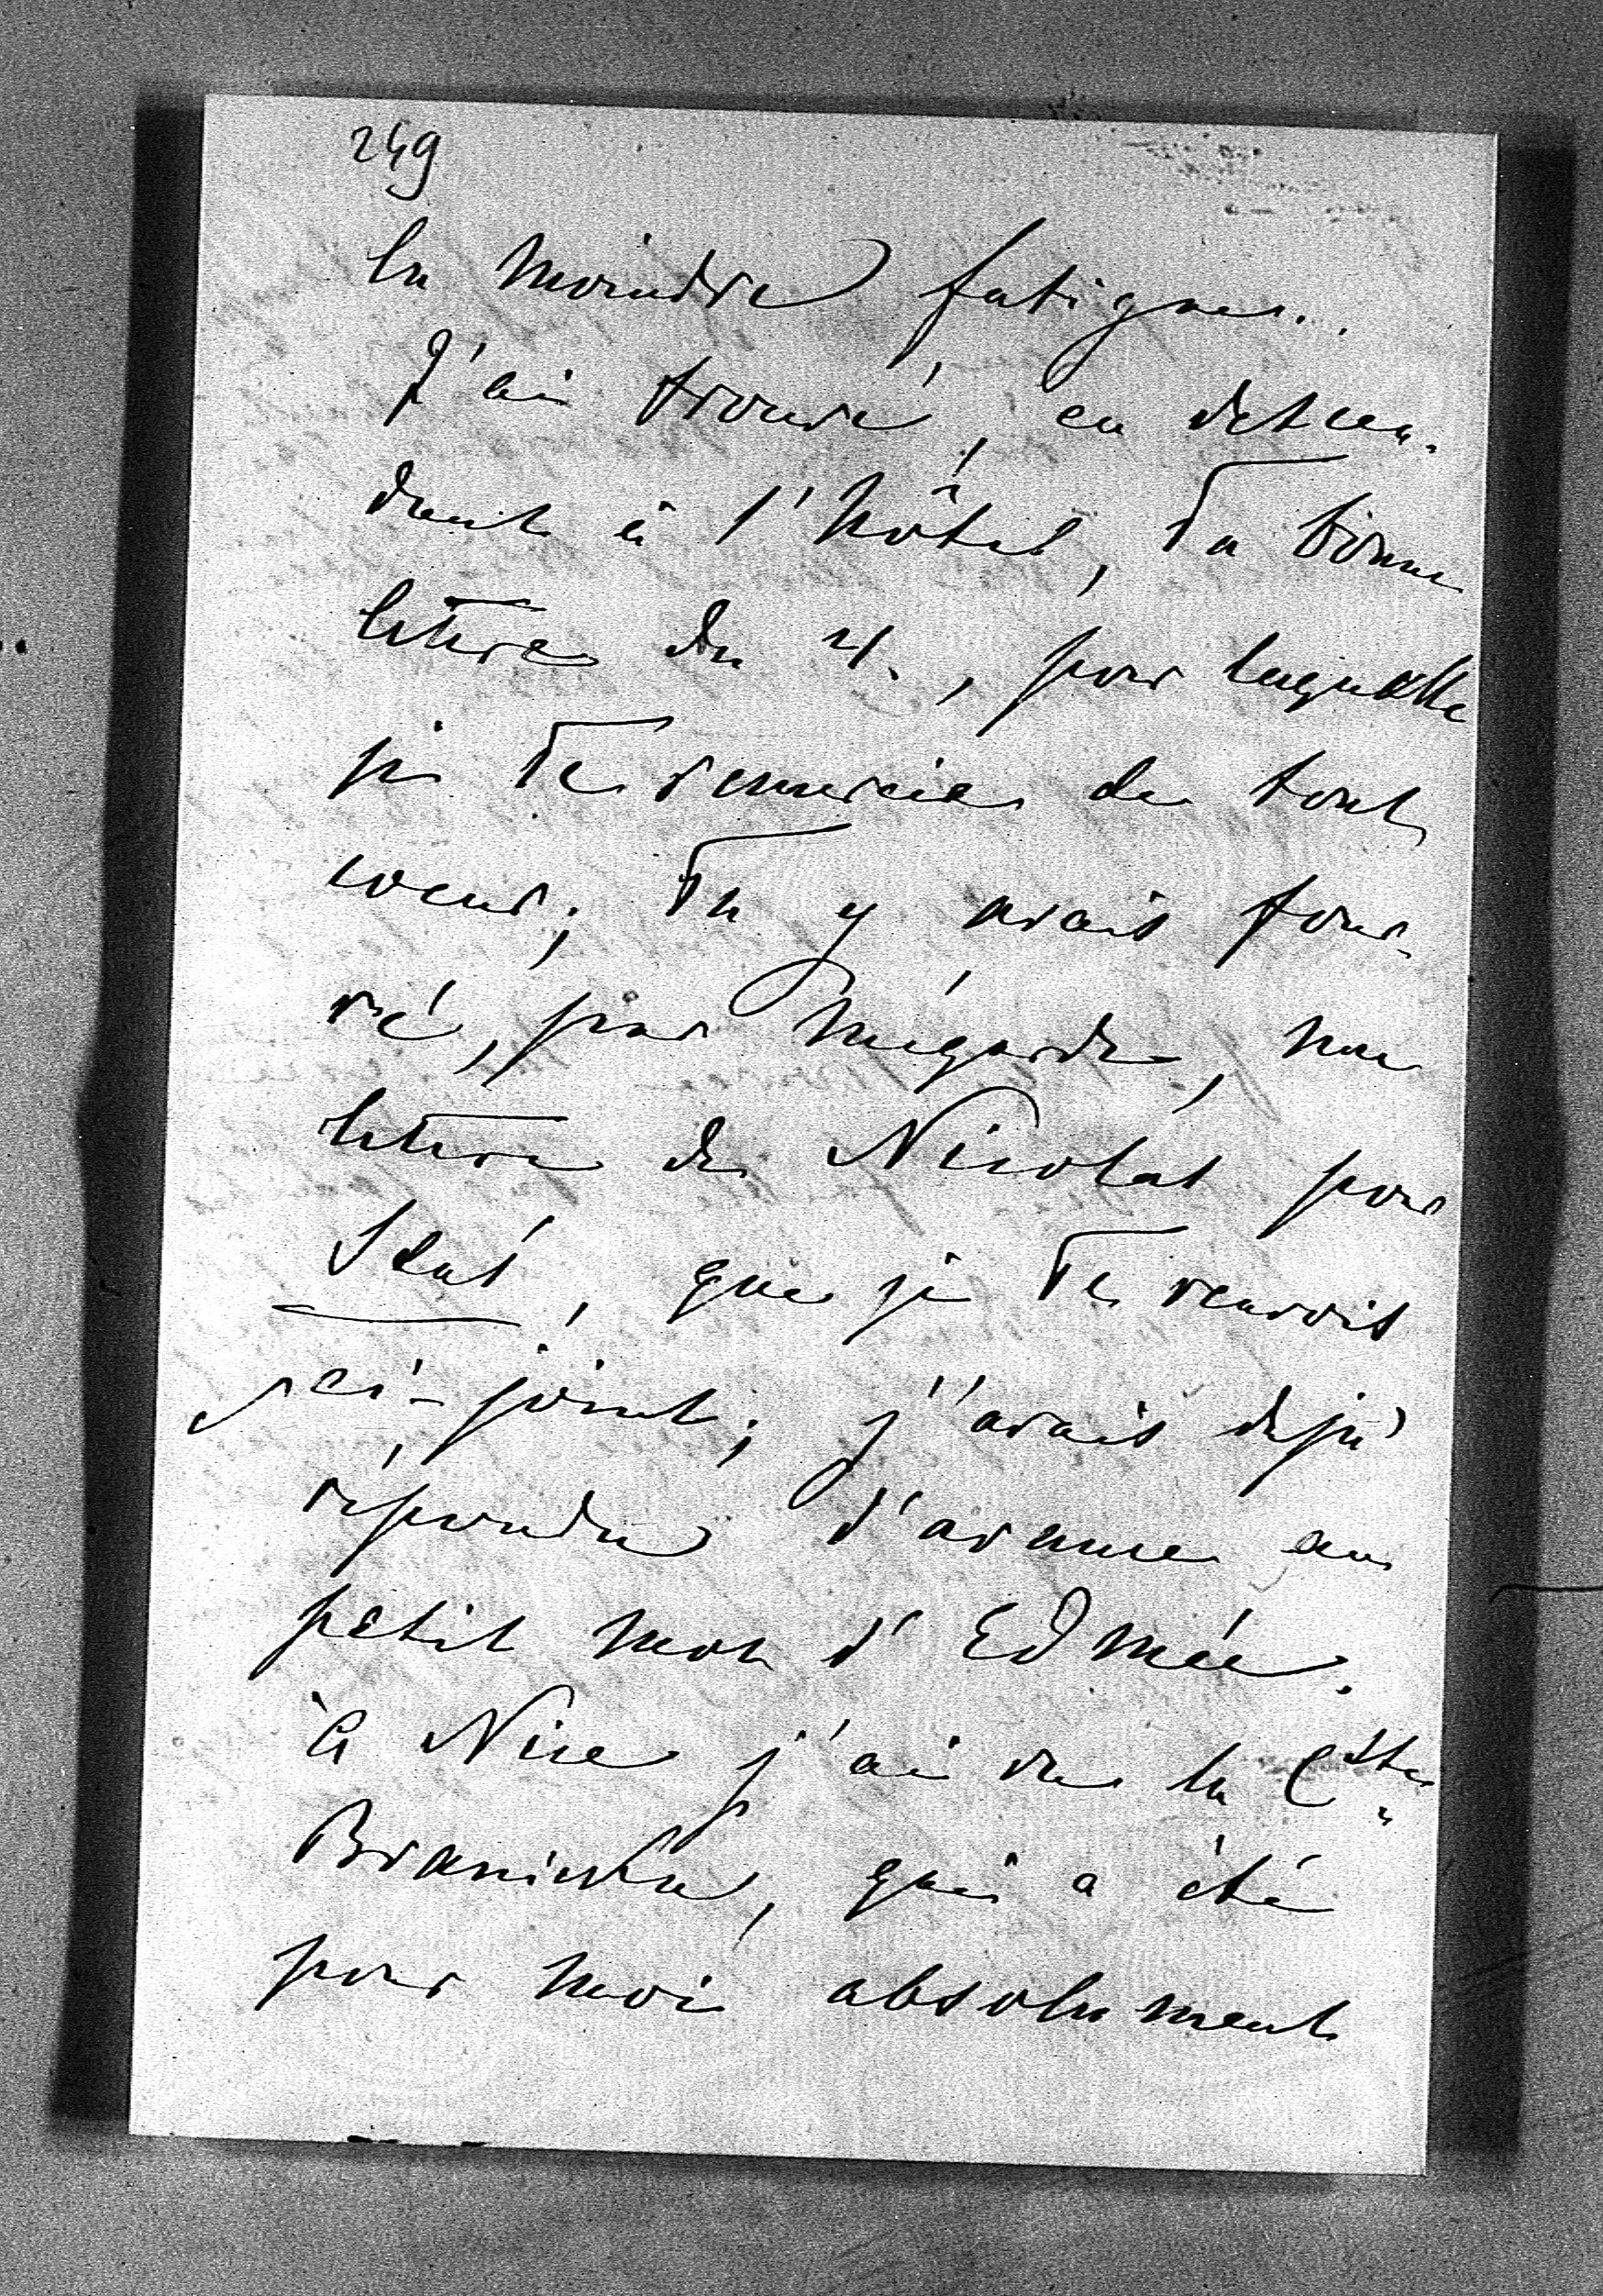 249
la moindre fatigue..
J'ai trouvé, en descen-
dant à l'hôtel, Ta bonne
lettre du 4., pour laquelle
je Te remercie de tout
coeur; Tu y avais four-
ré, par mégarde, une
lettre de Nicolas pour
Stas, que je Te renvois
ci-joint; j'avais dejà
répondu d'avance au
petit mot d'Edmée.
à Nice j'ai vu la Ctsse
Branicka, qui a été
pour moi absolument